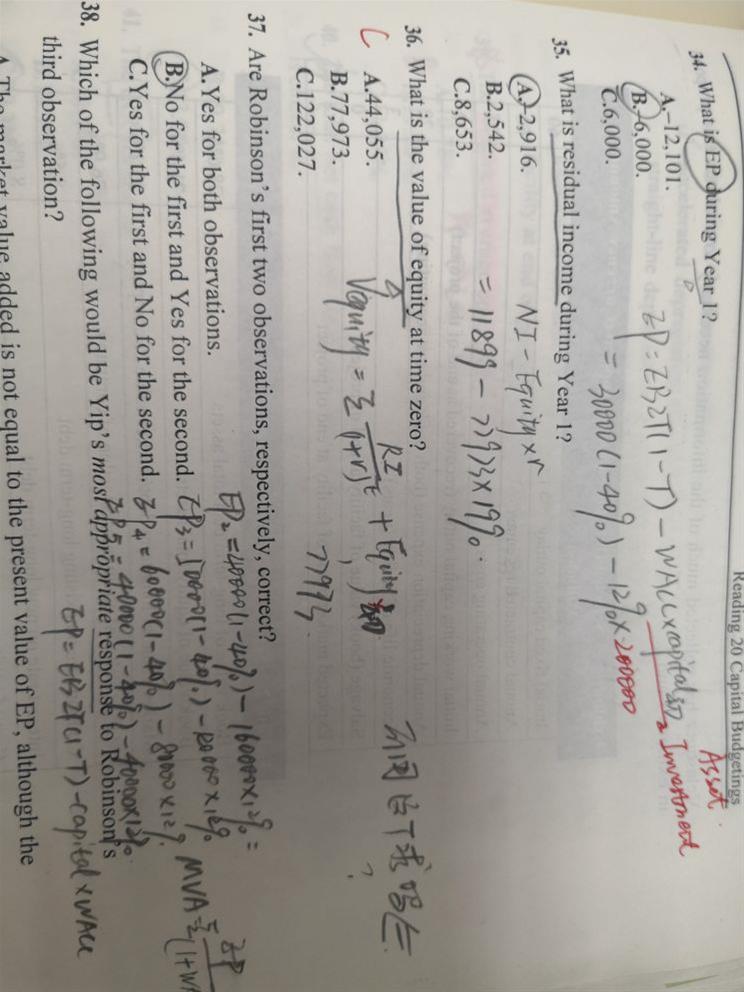 Reading 20 Capital Budgetings
34. What is EP during Year 1?
Asset
A.-12,101.
EP = EBIT(1-T) - WACC × capital
Investment
B.-6,000.
= 30000(1-40%) - 12% × 200000
C.6,000.
35. What is residual income during Year 1?
A.-2,916.
NI - Equity × r
B.2,542.
= 11899 - 77973 × 19%
C.8,653.
36. What is the value of equity at time zero?
C A.44,055.
Vequity = Σ RI / (1+r)^t + Equity
B.77,973.
77973
C.122,027.
37. Are Robinson's first two observations, respectively, correct?
A.Yes for both observations.
EP2 = 40000(1-40%) - 160000×12% =
B.No for the first and Yes for the second.
EP3 = 50000(1-40%) - 120000×12%
C.Yes for the first and No for the second.
EP4 = 60000(1-40%) - 80000×12%
MVA = Σ EP
EP5 = 40000(1-40%) - 40000×12%
38. Which of the following would be Yip's most appropriate response to Robinson's
third observation?
EP = EBIT(1-T) - capital × WACC
A. The market value added is not equal to the present value of EP, although the